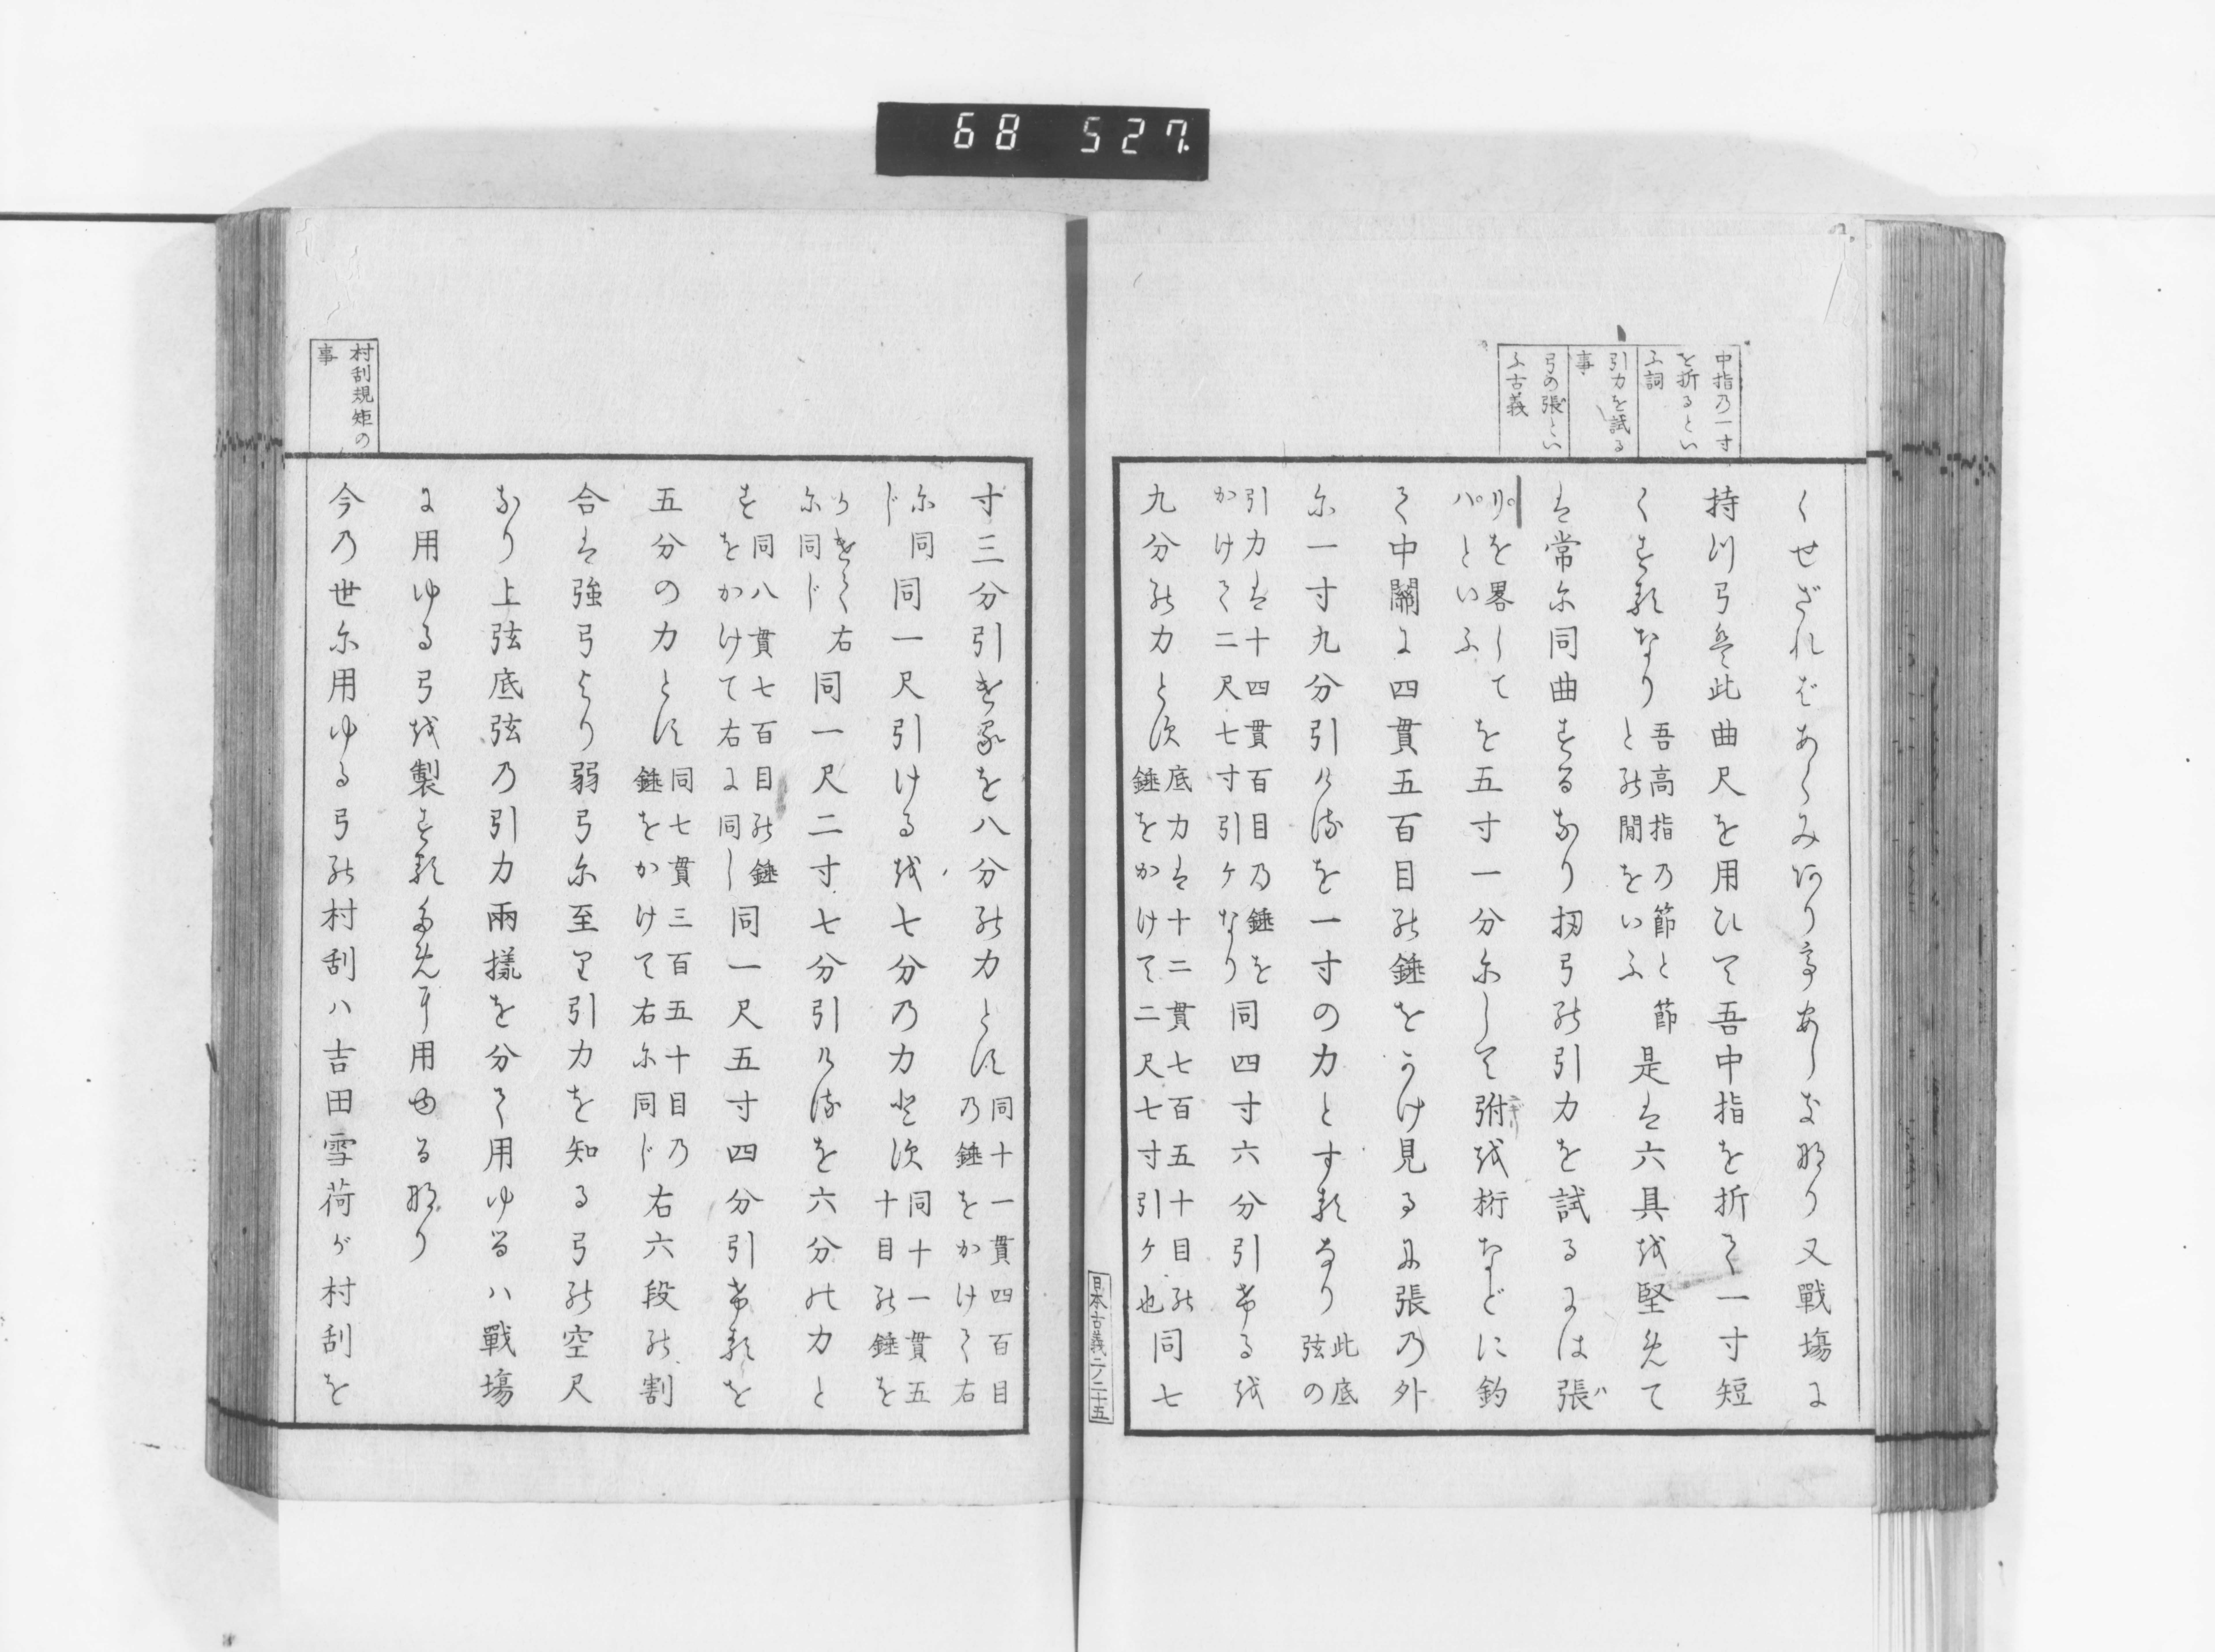 68 527
中指乃一寸
を折るとい
ふ詞
引力を試る
事
弓の張とい
ふ古義
くせざれバあしみ
なり又戰塲に
持川弓此曲尺を用ひて吾中指を折て一寸短
くするなり
吾高指乃節と節
との間をいふ
是は六具を堅めて
は常尓同曲するなり扨弓の引力を試るには張
りを畧して
パといふ
を五寸一分尓して弣を桁などに釣
て中關に四貫五百目の錘をうけ見るに張乃外
尓一寸九分引けるを一寸の力とするなり
此底
弦の
引力は十四貫百目乃錘を
かけて二尺七寸引ケなり
同四寸六分引ける を
九分の力とす
底力は十二貫七百五十目の
錘をかけて二尺七寸引ケ也
同七
寸三分引きを八分の力とす
同十一貫四百目
乃錘をかけて右
尓同
じ
同一尺引けるを七分乃力とす
同十一貫五
十目の錘を
右
尓同じ
同一尺二寸七分引けるを六分の力と
す
同八貫七百目の錘
をかけて右に同し
同一尺五寸四分引けるを
五分の力とす
同七貫三百五十目乃
錘をかけて右尓同じ
右六段の割
合は強弓より弱弓尓至り引力を知る弓の空尺
なり上弦底弦乃引力兩樣を分て用ゆるハ戰塲
に用ゆる弓を製するために用ゆる なり
村刮規矩の
事
今乃世尓用ゆる弓の村刮ハ吉田雪荷が村刮を
日本古義二ノ二十五